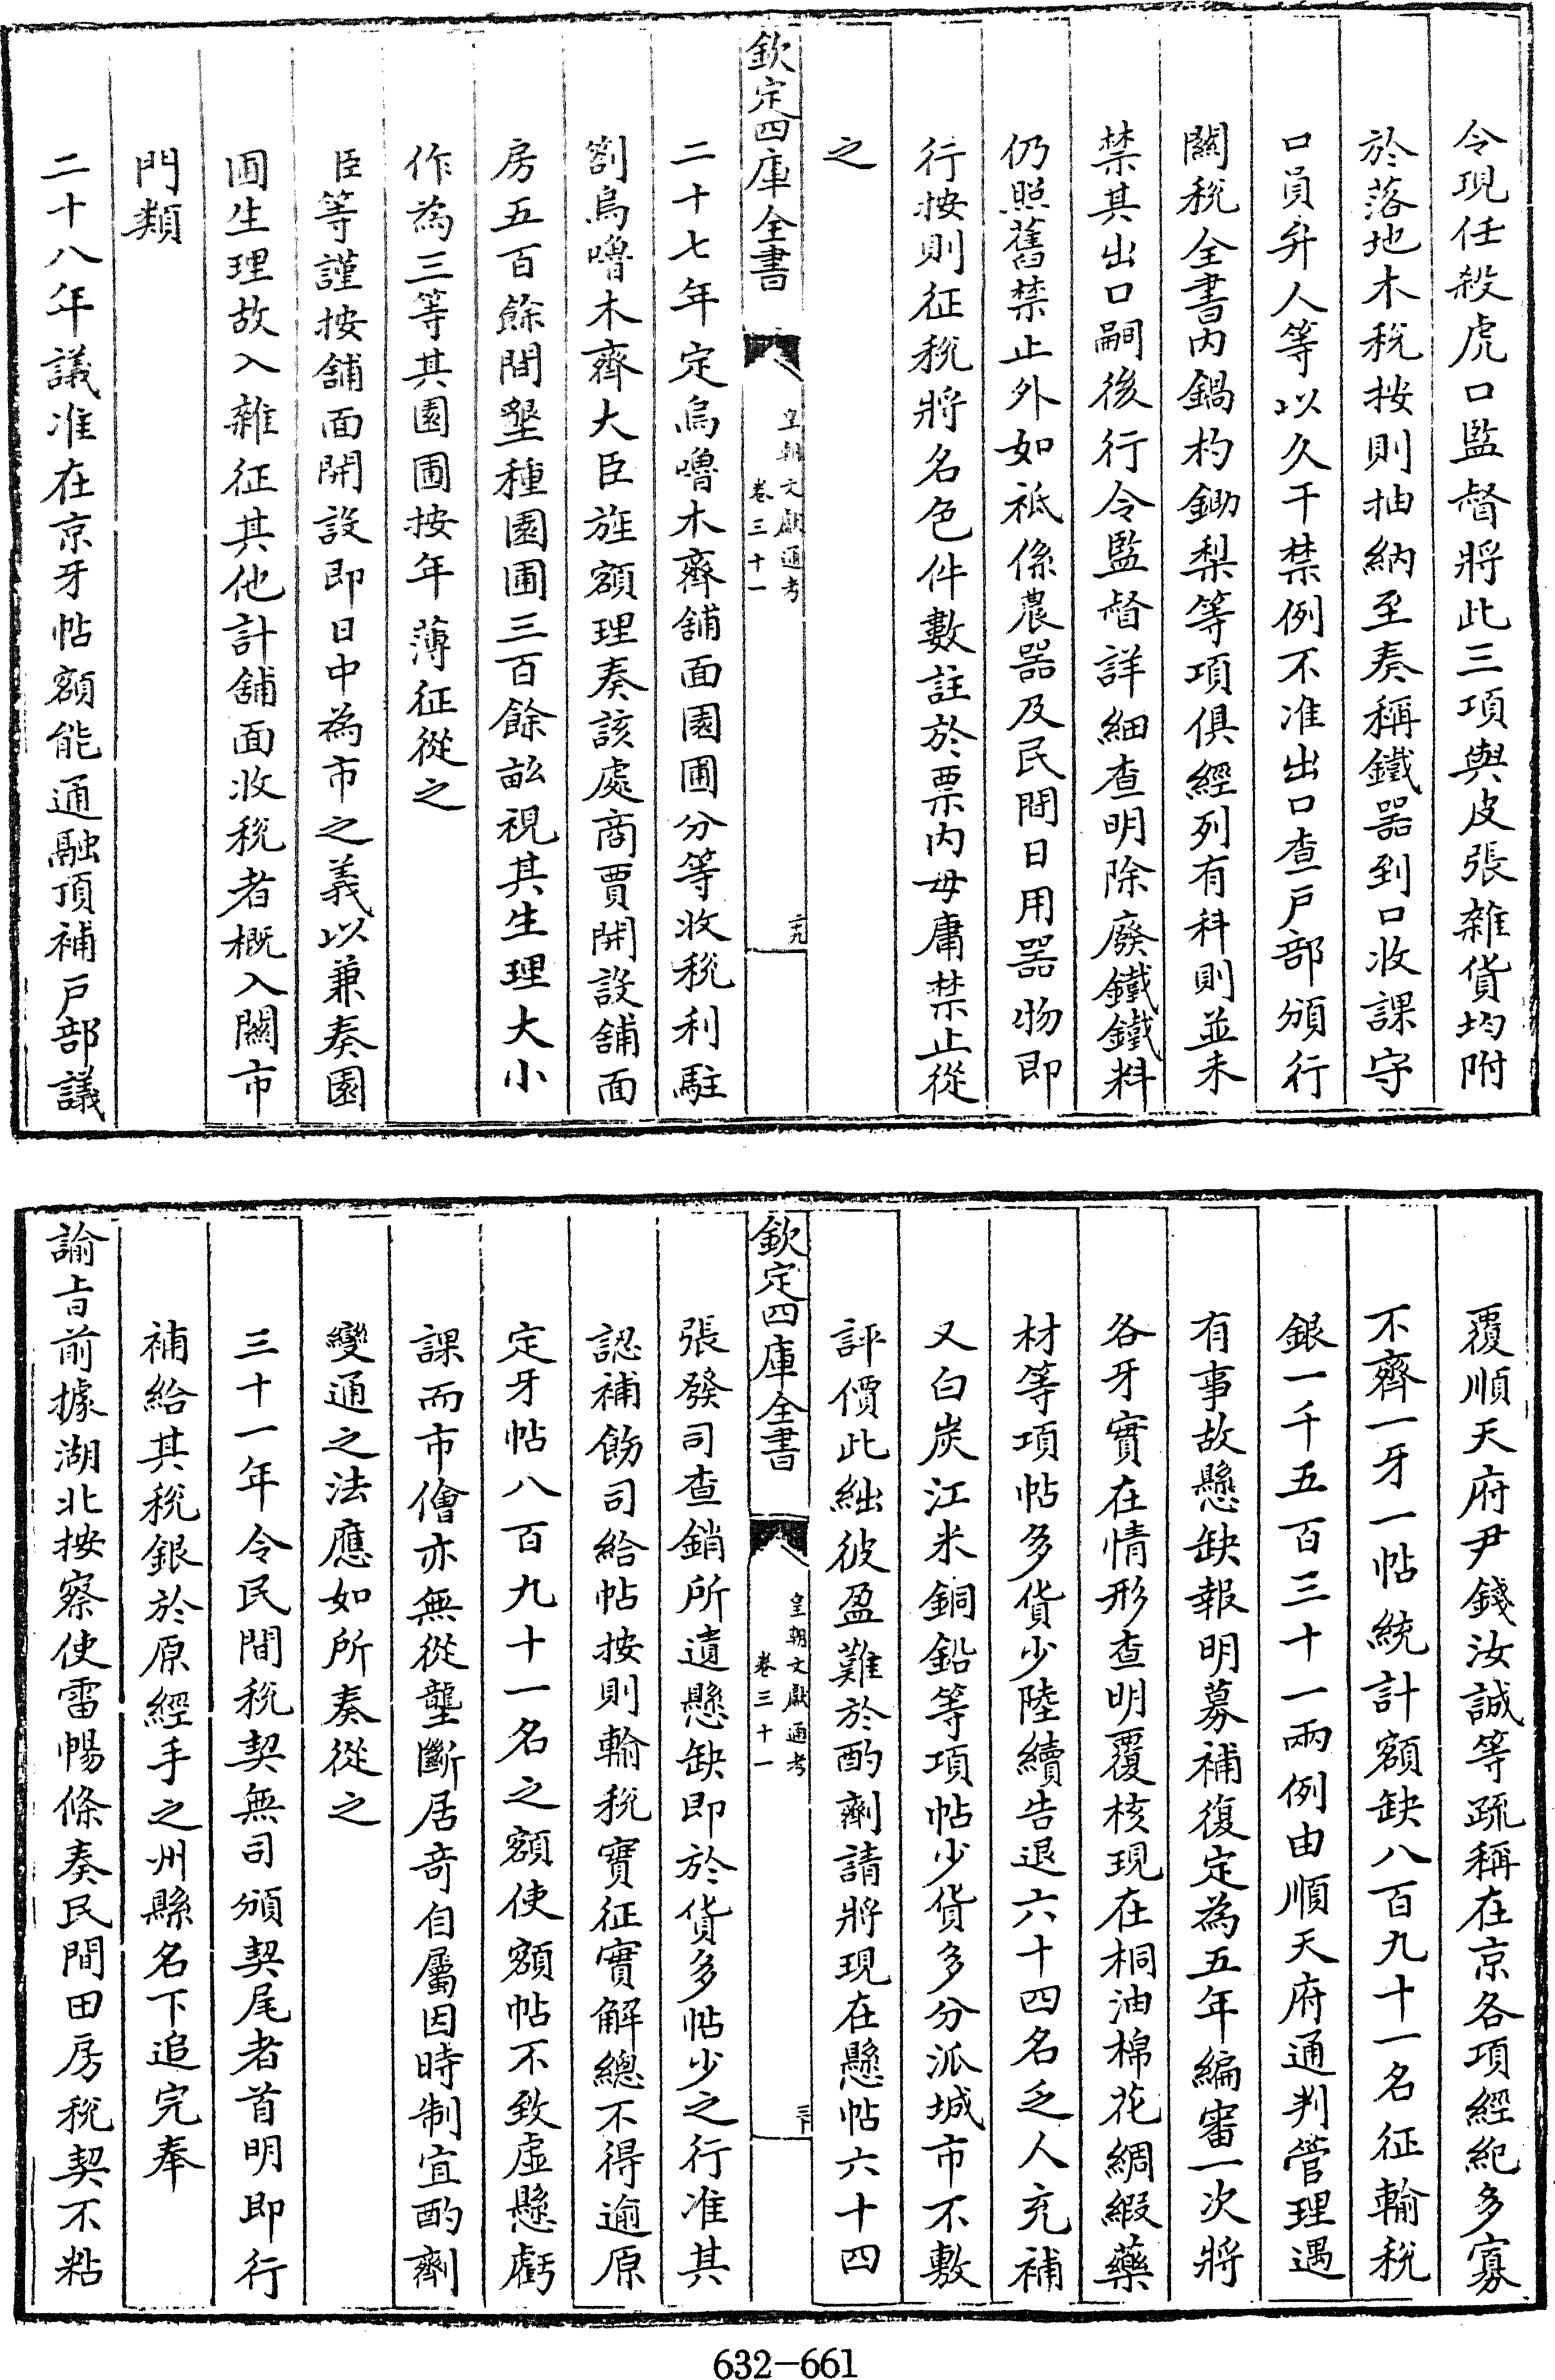 令現任殺虎口監督將此三項與皮張雜貨均附
於落地木稅按則抽納至奏稱鐵器到口收課守
口員弁人等以久干禁例不准出口查戸部頒行
關稅全書内鍋杓鋤犁等項俱經列有科則並未
禁其出口嗣後行令監督詳細查明除廢鐵鐵料
仍照舊禁止外如祗係農器及民間日用器物即
行按則征稅將名色件數註於票内毋庸禁止從
之
欽定四庫全書
皇朝文獻通考
卷三十一
二十七年定烏嚕木齊舖面園圃分等收稅利駐
劄烏嚕木齊大臣旌額理奏該處商賈開設舖面
房五百餘間墾種園圃三百餘畝視其生理大小
作為三等其園圃按年薄征從之
臣等謹按舖面開設即日中為市之義以兼奏園
圃生理故入雜征其他計舖面收稅者概入關市
門類
二十八年議准在京牙帖額能通融頂補戸部議
覆順天府尹錢汝誠等疏稱在京各項經紀多寡
不齊一牙一帖統計額缺八百九十一名征輸稅
銀一千五百三十一兩例由順天府通判管理遇
有事故懸缺報明募補復定為五年編審一次將
各牙實在情形查明覆核現在桐油棉花綢緞藥
材等項帖多貨少陸續告退六十四名乏人充補
又白炭江米銅鉛等項帖少貨多分派城市不敷
評價此絀彼盈難於酌劑請將現在懸帖六十四
欽定四庫全書
皇朝文獻通考
卷三十一
三十
張發司查銷所遺懸缺即於貨多帖少之行准其
認補飭司給帖按則輸稅實征實解總不得逾原
定牙帖八百九十一名之額使額帖不致虛懸虧
課而市儈亦無從壟斷居奇自屬因時制宜酌劑
變通之法應如所奏從之
三十一年令民間稅契無司頒契尾者首明即行
補給其稅銀於原經手之州縣名下追完奉
諭旨前據湖北按察使雷暢條奏民間田房稅契不粘
632-661